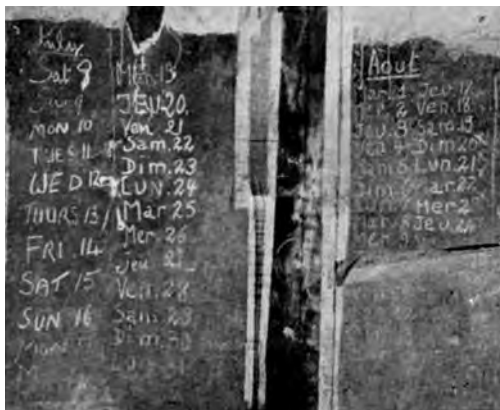 July
Sat 8
Sun 9
MON 10
TUES 11
WED 12
THURS 13
FRI.14
SAT 15
SUN 16
JEU.20.
Ven 21
Sam.22
Dim.23
LUN.24
Mar 25
Mer.26
Jeu
Ven.28
Sam
Dim.
Aout
Mar 1
Mer 2
Jeu.3
Ven 4
Sam 5
Jeu.17
Ven.18
Sam.19
Dim 20
Lun.21
Mar 22
Mer 2
Jeu.24